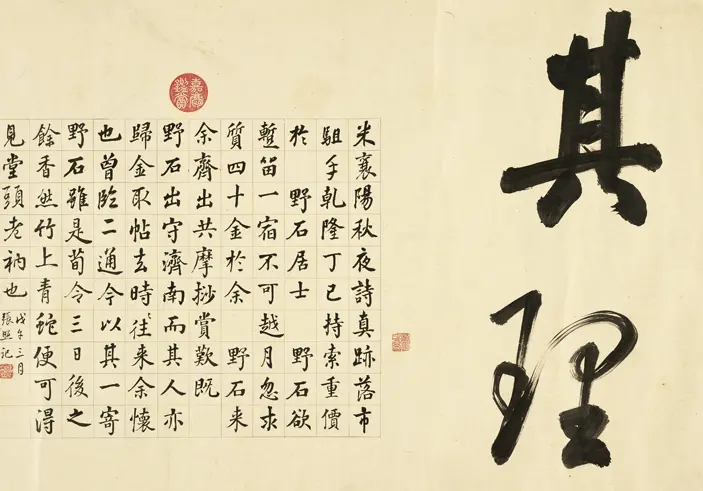 其理
米襄陽秋夜詩真跡落市
駔手乾隆丁巳持索重價
於 野石居士 野石欲
蹔留一宿不可越月忽求
質四十金於余 野石来
余齋出共摩挱賞歎既
野石出守濟南而其人亦
歸金取帖去時往来余懷
也曾臨二通今以其一寄
野石雖是荀令三日後之
餘香然竹上青蛇便可淂
見堂頭老衲也
戊午三月
張照記
嘉慶鑑賞